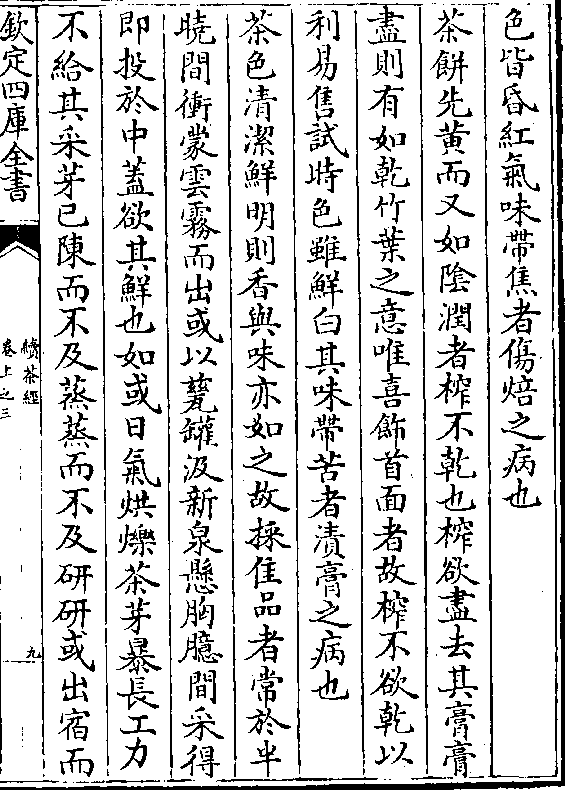 色皆昏紅氣味帶焦者傷焙之病也
茶餅先黄而又如陰潤者榨不乾也榨欲盡去其膏膏
盡則有如乾竹葉之意唯喜飾首面者故榨不欲乾以
利易售試時色雖鮮白其味帶苦者漬膏之病也
茶色清潔鮮明則香與味亦如之故採佳品者常於半
曉間衝蒙雲霧而出或以甆罐汲新泉懸胸臆間采得
即投於中蓋欲其鮮也如或日氣烘爍茶芽暴長工力
不給其采芽已陳而不及蒸蒸而不及研研或出宿而
欽定四庫全書
續茶經
卷上之三
九